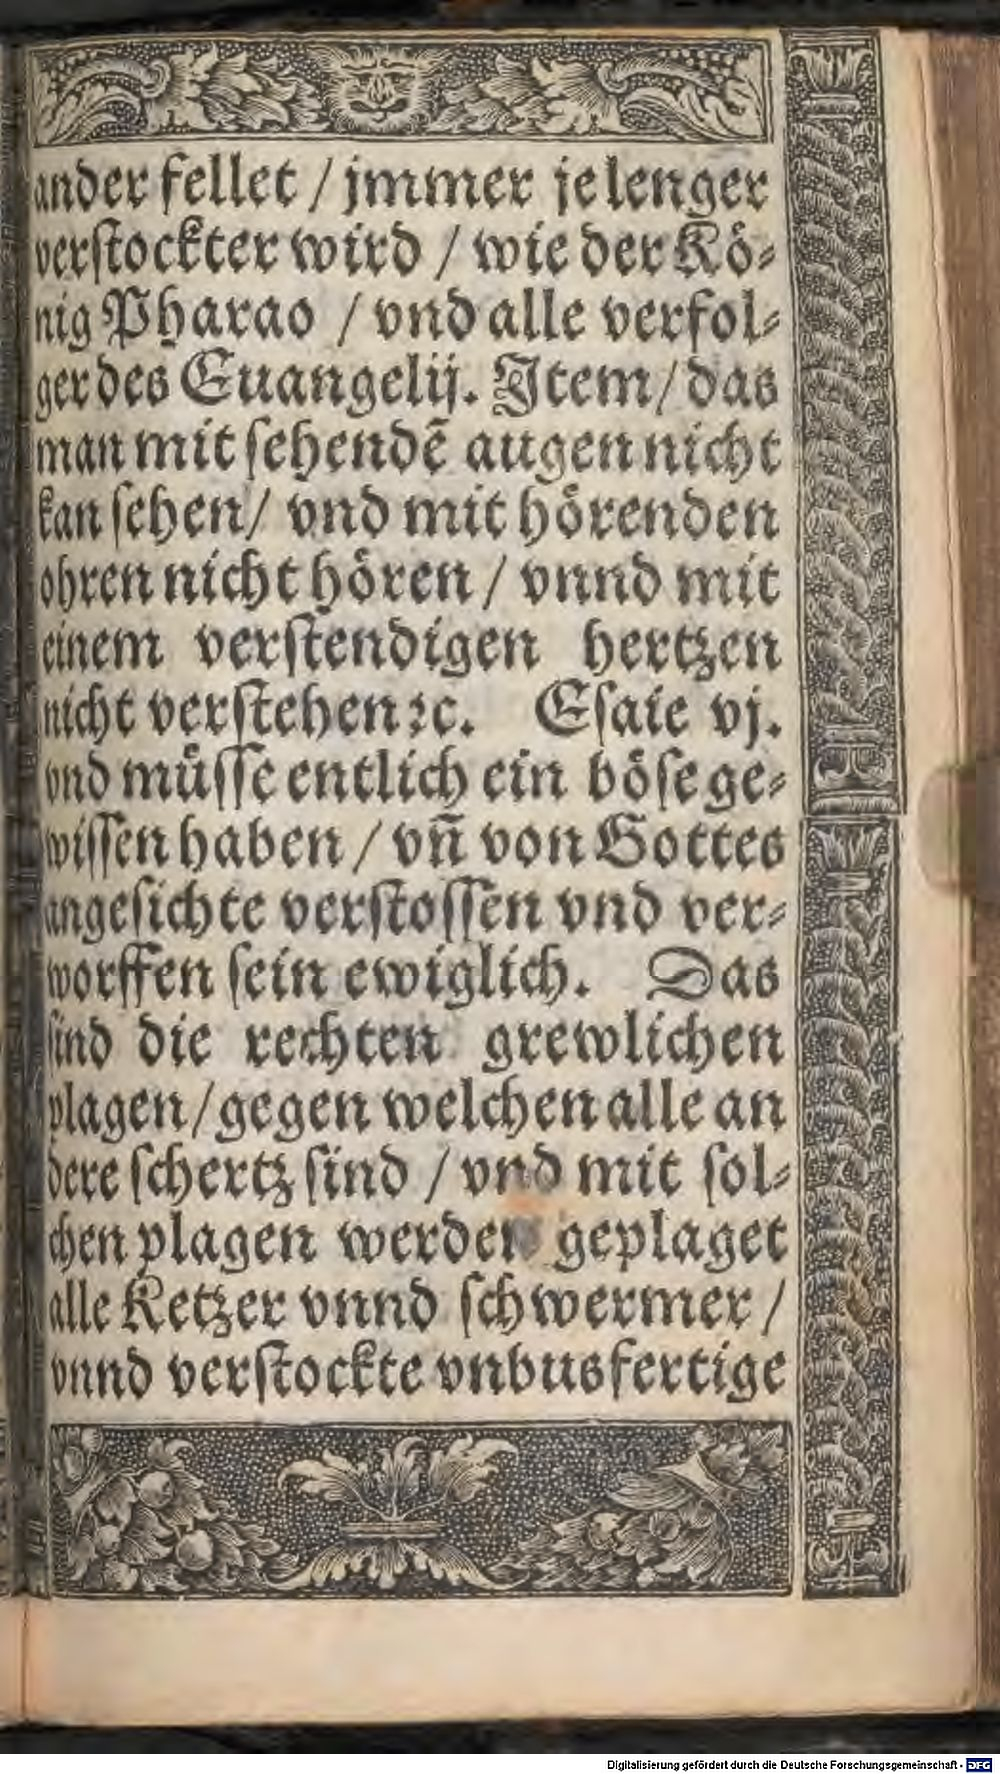 ander fellet / jmmer je lenger
verſtockter wird / wie der Kö⸗
nig Pharao / vnd alle verfol⸗
ger des Euangelij. Jtem / das
man mit ſehendẽ augen nicht
kan ſehen / vnd mit hörenden
ohren nicht hören / vnnd mit
einem verſtendigen hertzen
nicht verſtehen ꝛc. Eſaie vj.
vnd müſſe entlich ein böſe ge⸗
wiſſen haben / vñ von Gottes
angeſichte verſtoſſen vnd ver⸗
worffen ſein ewiglich. Das
ſind die rechten grewlichen
plagen / gegen welchen alle an
dere ſchertz ſind / vnd mit ſol⸗
chen plagen werden geplaget
alle Ketzer vnnd ſchwermer /
vnnd verſtockte vnbusfertige
Digitalisierung gefördert durch die Deutsche Forschungsgemeinschaft - DFG